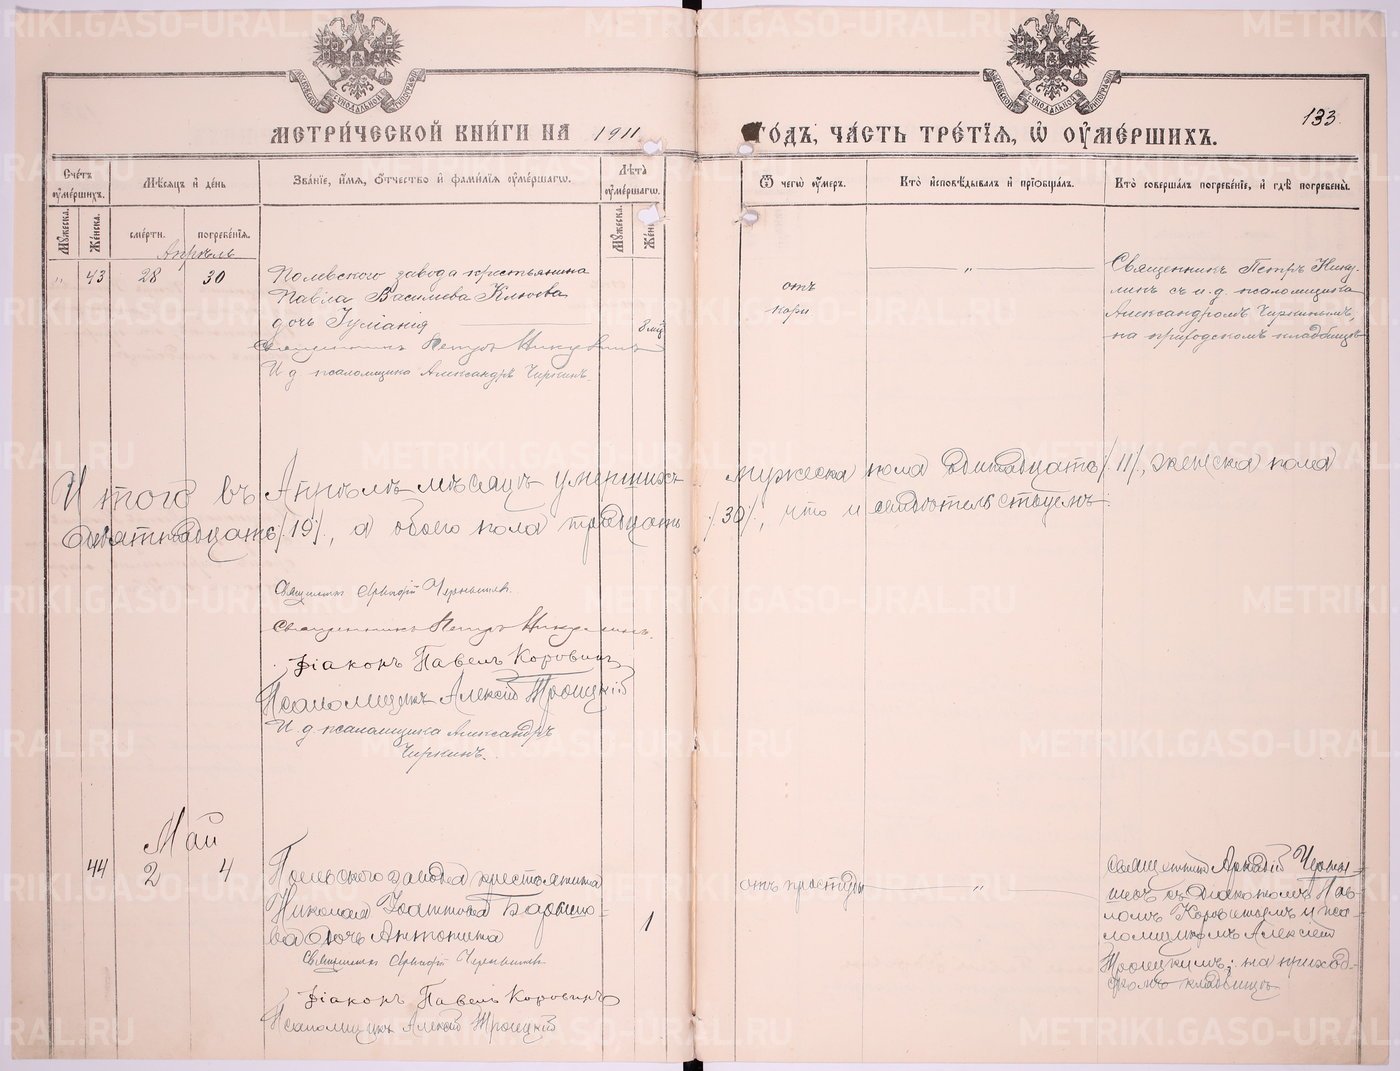 МЕТРИ́ЧЕСКОЙ КНИ́ГИ НА 1911
ГО́ДЪ, ЧА́СТЬ ТРЕ́ТIЯ, Ѡ ОУМЕ́РШИХЪ.
133
Счетъ оуме́ршихъ.
Мѣсяцъ и день
Зва́нїе, и́мя, о́тчество и фами́лїя оуме́ршагѡ.
Лѣта оуме́ршагѡ.
Ѿ чегѡ̀ оу́меръ.
Кто̀ исповѣ́дывалъ и прїобща́лъ.
Кто̀ соверша́лъ погребе́нїе, и гдѣ̀ погребены̀.
Му́жеска.
Же́нска.
сме́рти.
погребе́нїя.
Му́жеска.
Же́нс
Апрѣль
" 43 28 30
Полевского завода крестьянина
Павла Васильева Клюева
дочь Іуліанія
8 мѣ
Священникъ Петръ Никулинъ
И д псаломщика Александръ Чиркинъ.
отъ
кори
"
Священникъ Петръ Нику-
линъ съ и.д. псаломщика
Александромъ Чиркинымъ,
на приходскомъ кладбищѣ
Итого въ Апрѣлѣ мѣсяцѣ умершихъ мужеска пола одинадцать /11/, женска пола
девятнадцать /19/, а обоего пола тридцать /30/, что и свидѣтельствуемъ:
Священникъ Аркадій Чернышевъ
Священникъ Петръ Никулинъ.
Діаконъ Павелъ Коровинъ
Псаломщикъ Алексѣй Троицкій
И д псаломщика Александръ
Чиркинъ.
Май
44 2 4
Полевского завода крестьянина
Николая Іоаннова
ва дочь Антонина
1
Священникъ Аркадій Чернышевъ
Діаконъ Павелъ Коровинъ
Псаломщикъ Алексѣй Троицкій
отъ простуды
"
Священникъ Аркадій Черны-
шевъ съ діакономъ Пав-
ломъ Коровинымъ и пса-
ломщикомъ Алексѣемъ
Троицкимъ; на приход-
скомъ кладбищѣ
METRIKI.GASO-URAL.RU